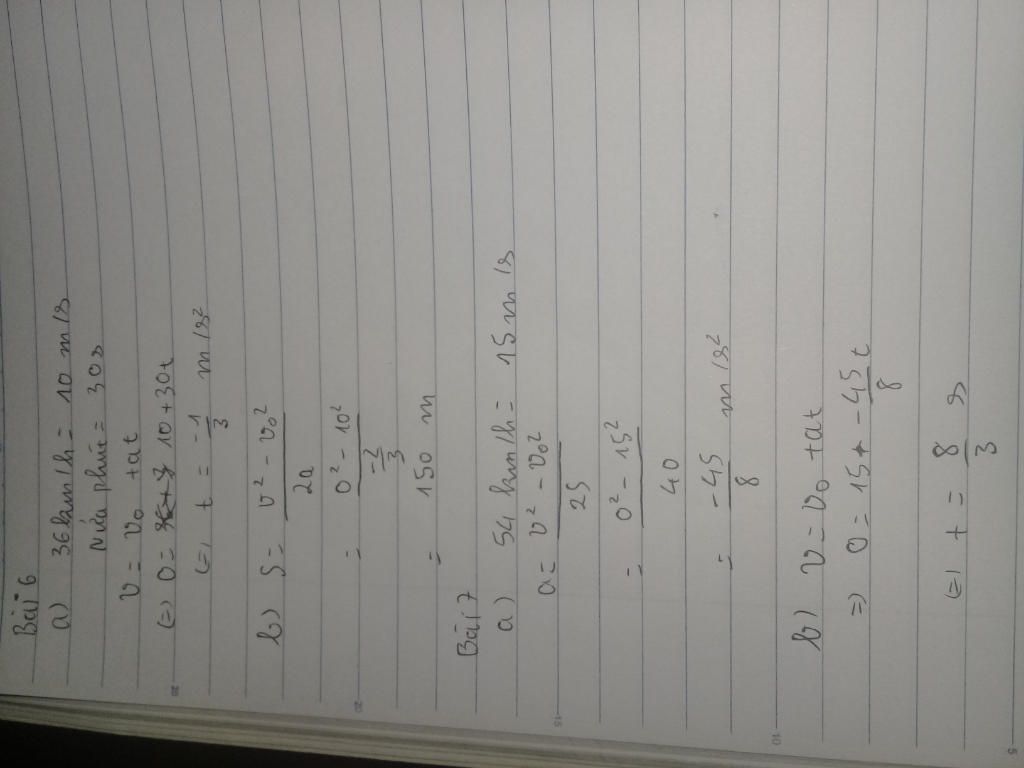 Bài 6
a) 36 km/h = 10 m/s
Nửa phút = 30 s
v = v₀ + at
(=) 0 = 10 + 30t
(=) t = -1/3 m/s²
b) S = (v² - v₀²)/2a
= (0² - 10²)/(-2/3)
= 150 m
Bài 7
a) 54 km/h = 15 m/s
a = (v² - v₀²)/2S
= (0² - 15²)/40
= -45/8 m/s²
b) v = v₀ + at
=) 0 = 15 + -45/8 t
(=) t = 8/3 s
20
20
15
10
5